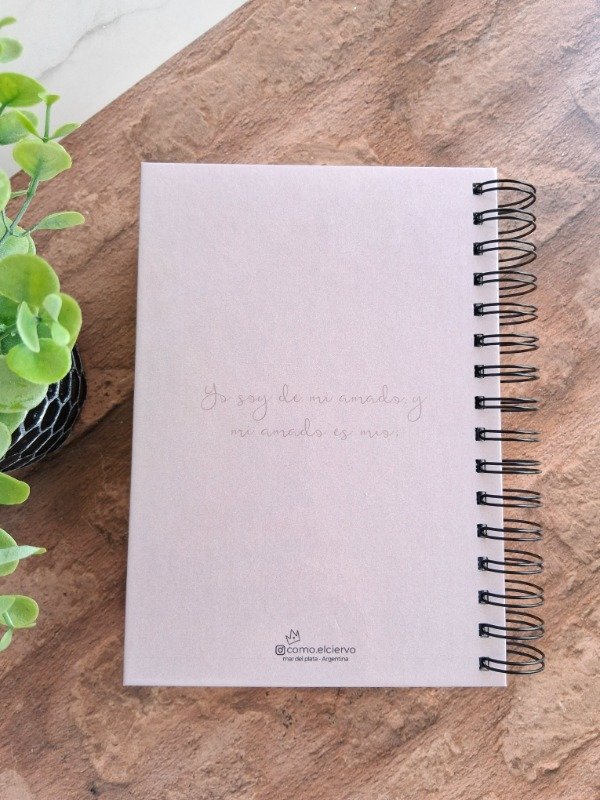 Yo soy de mi amado y
mi amado es mio;
como.elciervo
mar del plata - Argentina